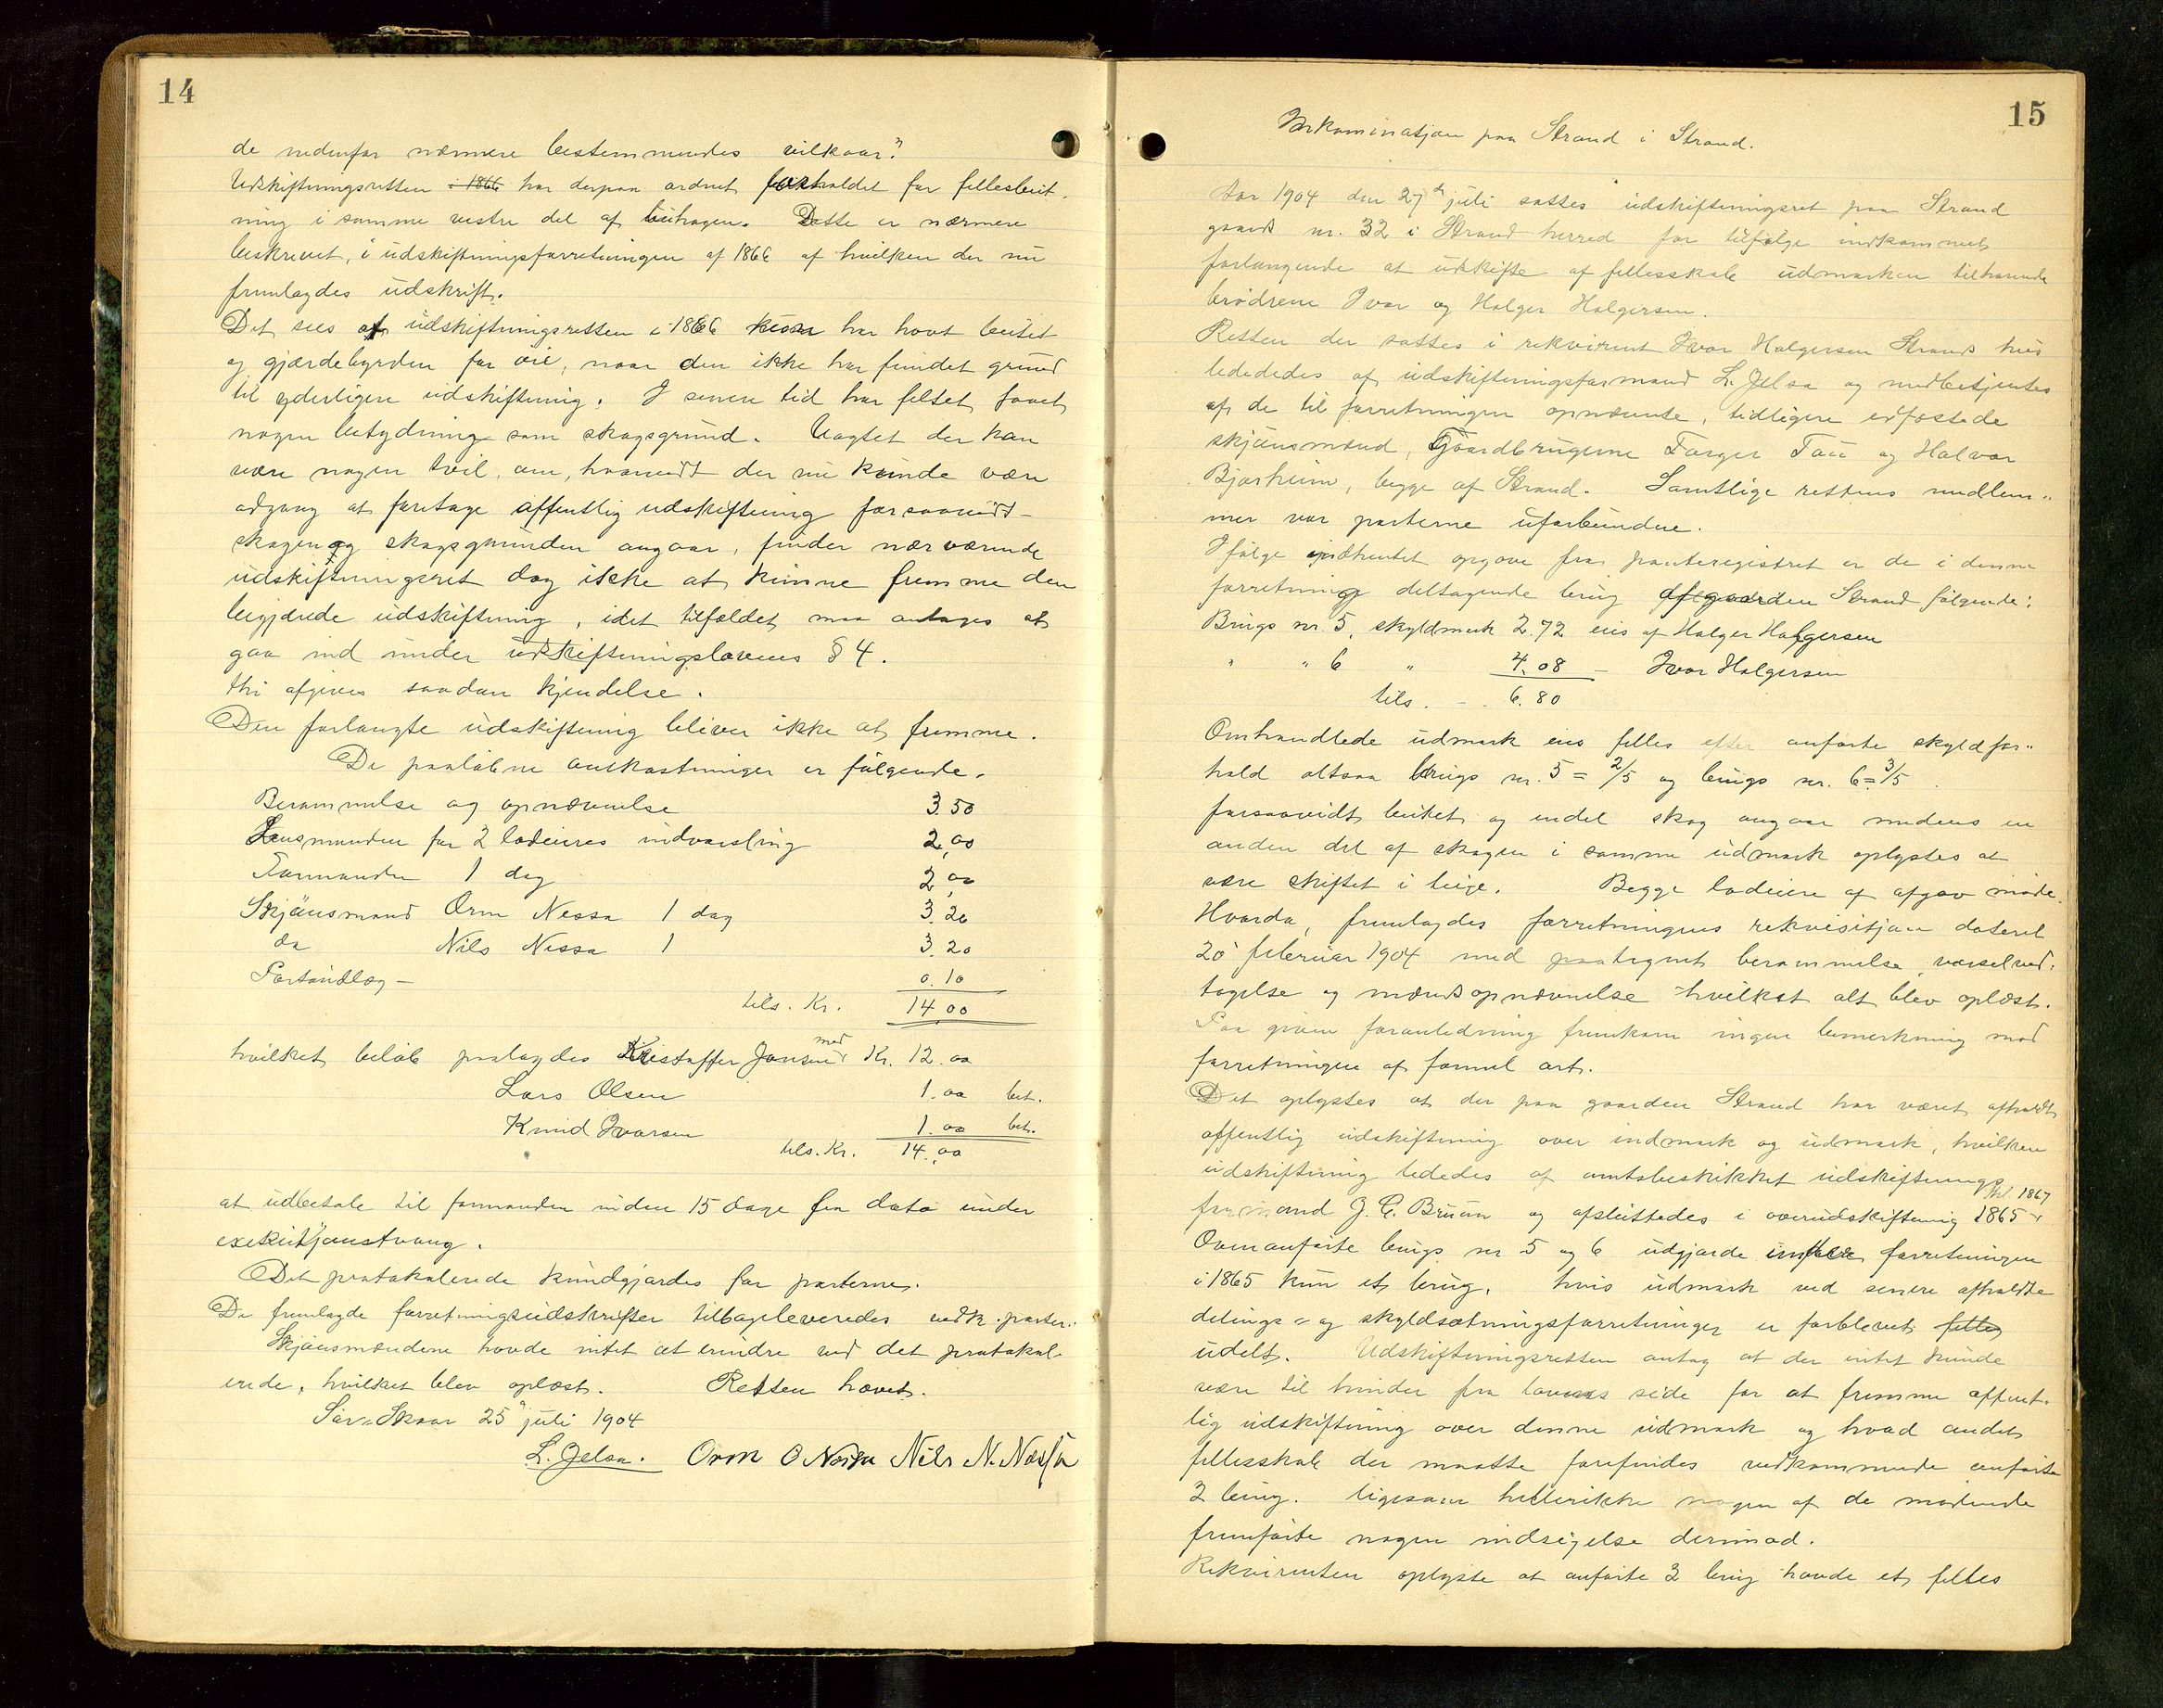 14
de nedenfor nærmere bestemmendes vilkaar."
Udskiftningsretten i 1866 har derpaa ordnet forholdet for fellesbeit-
ning i samme vestre del af buhagen. Dette er nærmere
beskrevet, i udskiftningsforretningen af 1866 af hvilken der nu
fremlagdes udskrift.
Det sees at udskiftningsretten i 1866 har havt beitet
og gjærdebyrden for øie, naar den ikke har fundet grund
til yderligere udskiftning. I senere tid har feltet faaet
nogen betydning som skogsgrund. Uagtet der kan
være nogen tvil, om, hvorvidt der nu kunde være
adgang at foretage offentlig udskiftning forsaavidt
skogen og skogsgrunden angaar, finder nærværende
udskiftningsret dog ikke at kunne fremme den
begjærede udskiftning, idet tilfældet maa antages at
gaa ind under udskiftningslovens § 4.
thi afgives saadan kjendelse.
Den forlangte udskiftning bliver ikke at fremme.
De paaløbne omkostninger er følgende.
Berammelse og opnævnelse 3.50
Lensmanden for 2 lodeieres indvarsling 2,00
Formanden 1 dag 2,00
Skjønsmand Orm Nessa 1 dag 3.20
do Nils Nessa 1 3.20
Portoudlæg - 0.10
tils. Kr. 14,00
hvilket beløb paalagdes Kristoffer Jonsen med Kr. 12.00
Lars Olsen 1.00 bet.
Knud Ivarsen 1.00 bet.
tils. Kr. 14,00
at udbetale til formanden inden 15 dage fra dato under
exekutjonstvang.
Det protokolerede kundgjordes for parterne.
De fremlagde forretningsudskrifter tilbageleveredes vedk. parter.
Skjønsmændene havde intet at erindre ved det protokol-
erede, hvilket blev oplæst. Retten hævet.
Sør-Skaar 25 juli 1904
L. Jelsa. Orm O Nessa Nils N. Nessa
15
Rekvisisjon paa Strand i Strand.
Aar 1904 den 27de juli sattes udskiftningsret paa Strand
gaards nr. 32 i Strand herred for tilfølge indkommet
forlangende at udskifte af fellesskab udmarken tilhørende
brødrene Ivar og Holger Holgersen.
Retten der sattes i rekvirent Ivar Holgersen Strands hus
lededes af udskiftningsformand L. Jelsa og medbetjentes
af de til forretningen opnævnte, tidligere edfæstede
skjønsmænd, Gaardbrugerne Torger Tau og Halvor
Bjørheim, begge af Strand. Samtlige rettens medlem-
mer var parterne uforbundne.
Ifølge indhentet opgave fra panteregistret er de i denne
forretning deltagende brug af gaarden Strand følgende:
Brugs nr. 5, skyldmark 2.72 eies af Holger Holgersen
" " 6 " 4.08 - Ivar Holgersen
tils. - 6.80
Omhandlede udmark eies felles efter anførte skyldfor-
hold altsaa brugs nr. 5 = 2/5 og brugs nr. 6 = 3/5.
forsaavidt beitet og endel skog angaar medens en
anden del af skogen i samme udmark oplystes at
være skiftet i teige. Begge lodeiere af afgav møde.
Hvorda, fremlagdes forretningens rekvisitjon dateret
20 februar 1904 med paategnet berammelse, varselved-
tagelse og mændsopnævnelse hvilket alt blev oplæst.
Paa given foranledning fremkom ingen bemerkning mod
forretningen af formel art.
Det oplystes at der paa gaarden Strand har været afholdt
offentlig udskiftning over indmark og udmark, hvilken
udskiftning lededes af amtsbeskikket udskiftnings-
formand J. C. Bruun og afsluttedes i overudskiftning 1865 tgl. 1867
Ovenanførte brugs nr 5 og 6 udgjorde under forretningen
i 1865 kun et brug, hvis udmark ved senere afholdte
delings- og skyldsætningsforretninger er forblevet felles
udelt. Udskiftningsretten antog at der intet kunde
være til hinder fra lovens side for at fremme offent-
lig udskiftning over denne udmark og hvad andet
fellesskab der maatte forefindes vedkommende anførte
2 brug. ligesom hellerikke nogen af de mødende
fremførte nogen indsigelse derimod.
Rekvirenten oplyste at anførte 2 brug havde et felles